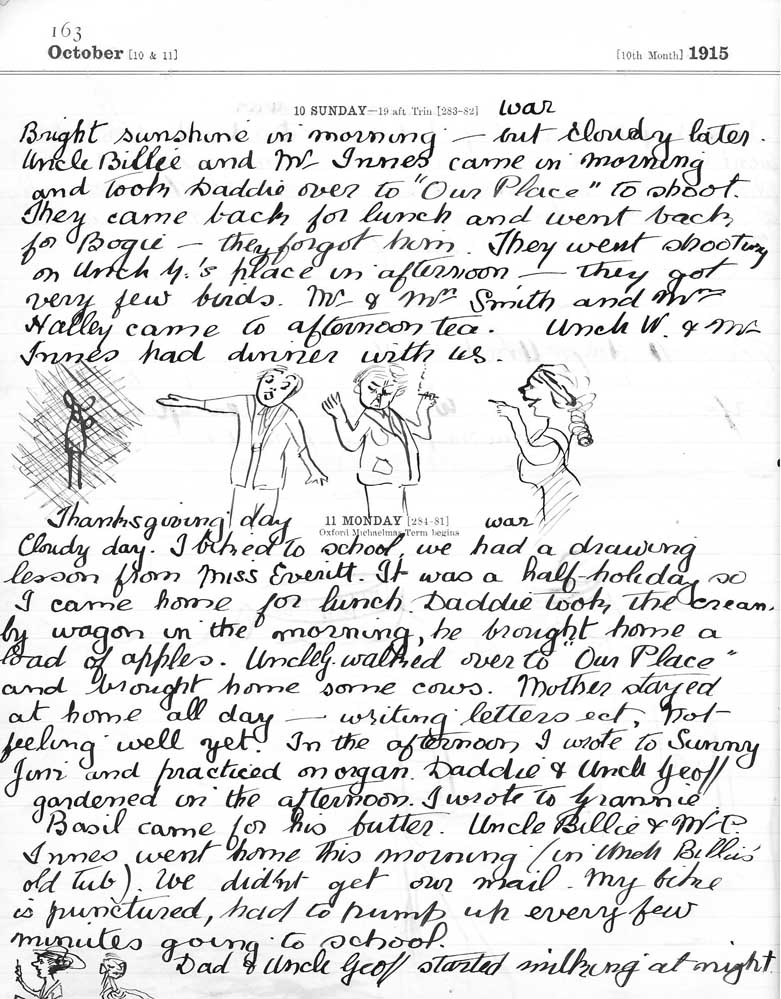 163
October [10 & 11] [10th Month] 1915
10 SUNDAY—19 aft Trin [283-82] war
Bright sunshine in morning — but cloudy later.
Uncle Billie and Mr Innes came in morning
and took Daddie over to "Our Place" to shoot.
They came back for lunch and went back
for Bogie — they forgot him. They went shooting
on Uncle G.'s place in afternoon — they got
very few birds. Mr & Mrs Smith and Mrs
Halley came to afternoon tea. Uncle W. & Mr
Innes had dinner with us.
Thanksgiving day 11 MONDAY [284-81] war
Oxford Michaelmas Term begins
Cloudy day. I biked to school, we had a drawing
lesson from Miss Everitt. It was a half-holiday so
I came home for lunch. Daddie took the cream
by wagon in the morning, he brought home a
load of apples. Uncle G. walked over to "Our Place"
and brought home some cows. Mother stayed
at home all day — writing letters ect, not
feeling well yet. In the afternoon I wrote to Sunny
Jim and practiced on organ. Daddie & Uncle Geoff
gardened in the afternoon. I wrote to Grannie.
Basil came for his butter. Uncle Billie & Mr C.
Innes went home this morning (in Uncle Billie's
old tub). We didn't get our mail. My bike
is punctured, had to pump up every few
minutes going to school.
Dad & Uncle Geoff started milking at night.